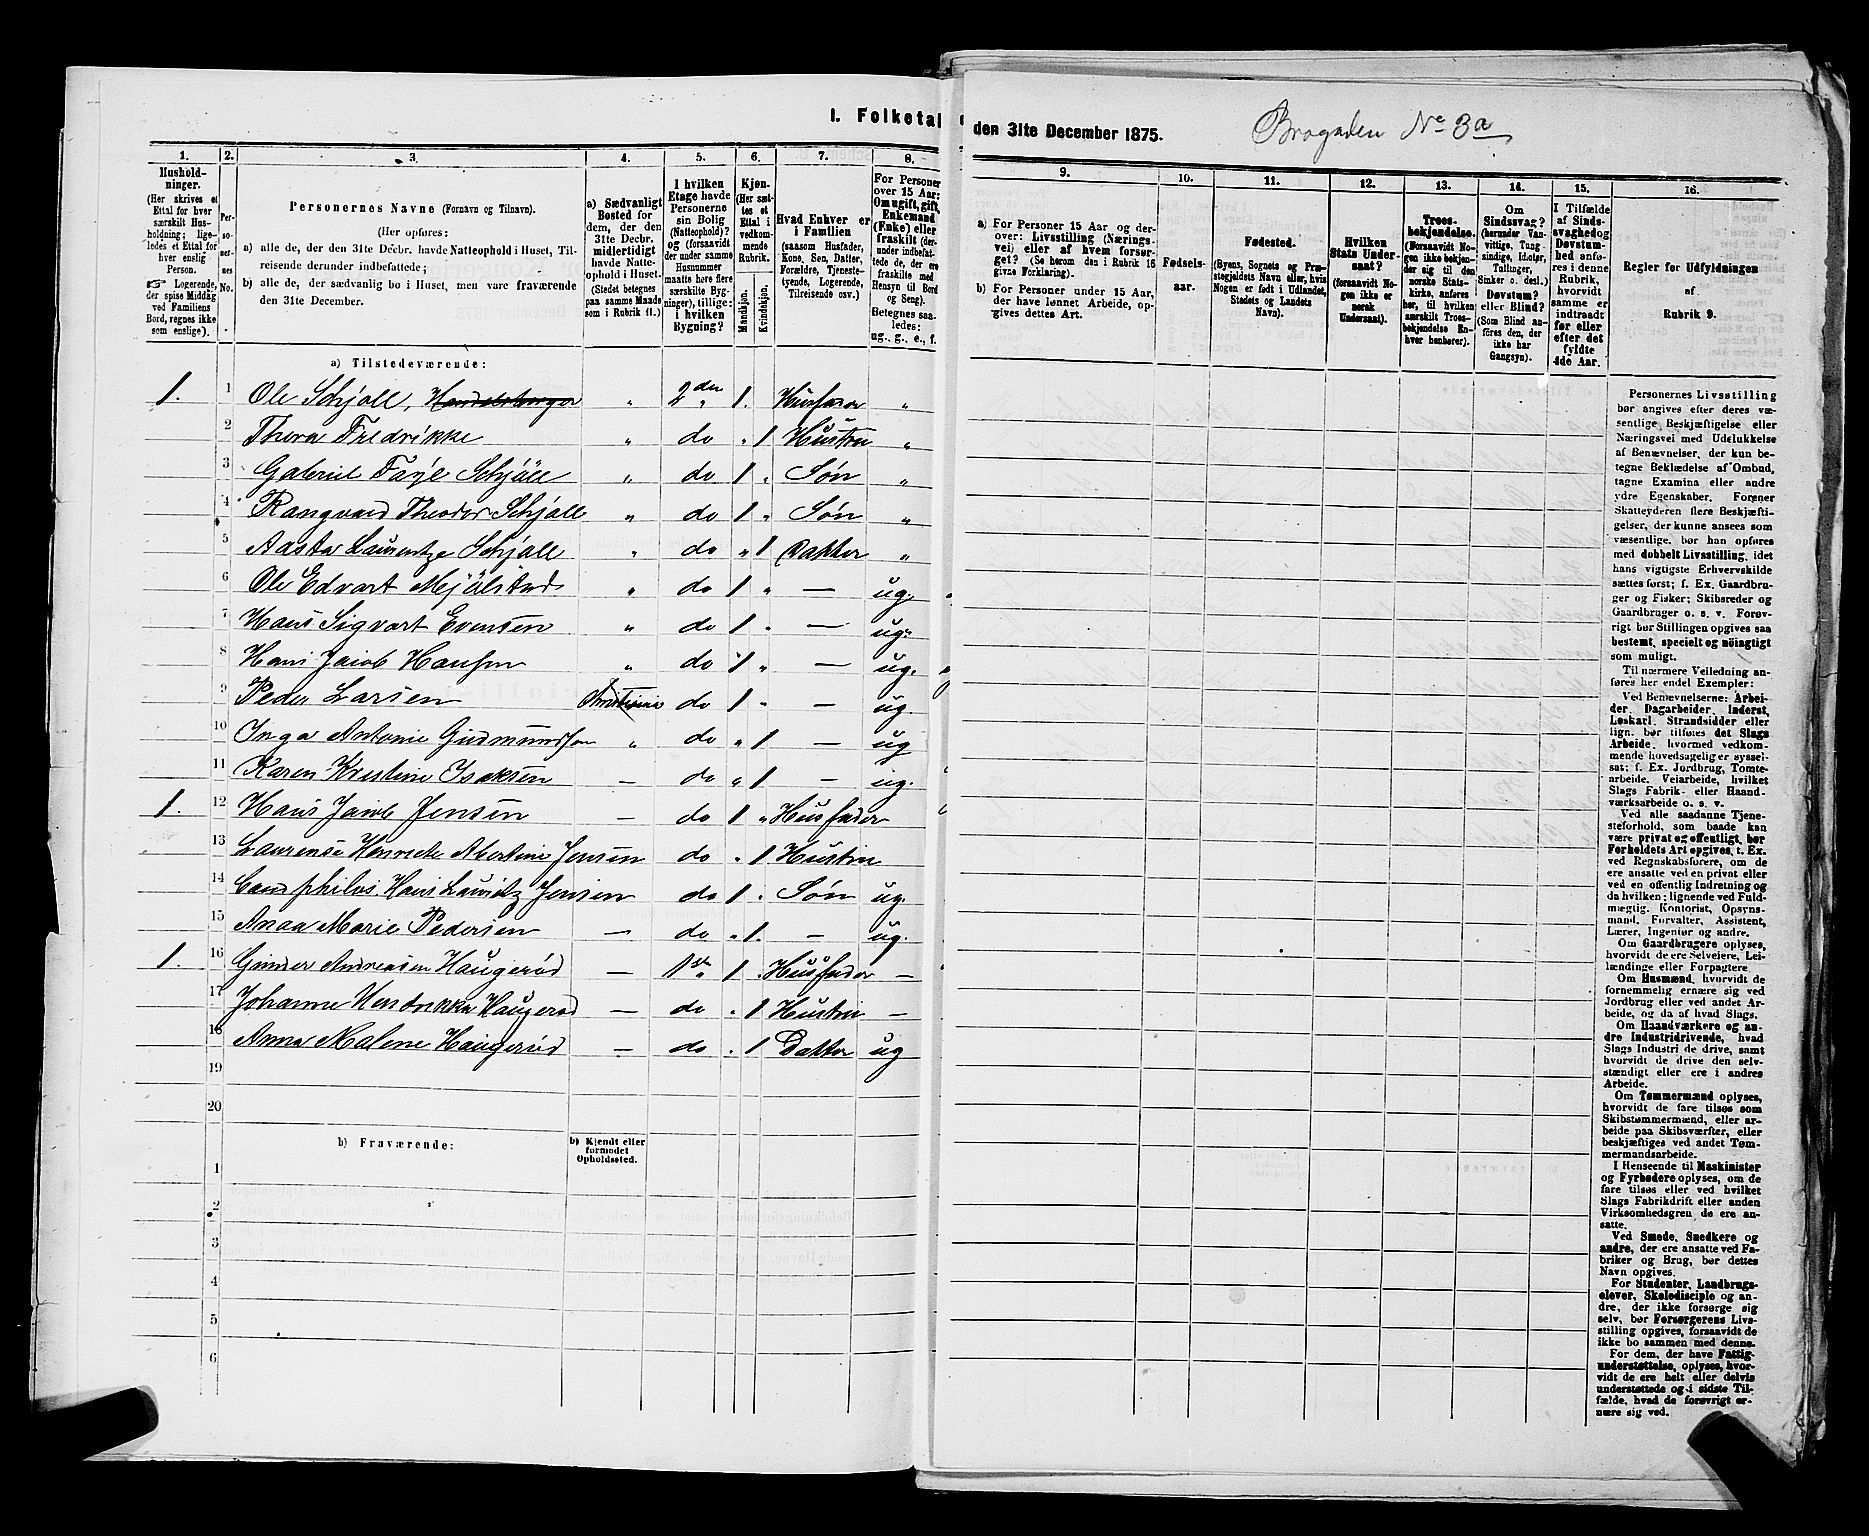 I. Folketal
den 31te December 1875.
Brogaden No 3a
1.
Hushold-
ninger.
(Her skrives et
Ettal for hver
særskilt Hus-
holdning; lige-
ledes et Ettal for
hver enslig
Person.
☞ Logerende,
der spise Middag
ved Familiens
Bord, regnes ikke
som enslige).
2.
Per-
so-
ner-
nes
No.
3.
Personernes Navne (Fornavn og Tilnavn).
(Her opføres:
a) alle de, der den 31te Decbr. havde Natteophold i Huset, Til-
reisende derunder indbefattede;
b) alle de, der sædvanlig bo i Huset, men vare fraværende
den 31te December.
4.
a) Sædvanligt
Bosted for
dem, der den
31te Decbr.
midlertidigt
havde Natte-
ophold i Huset.
(Stedet betegnes
paa samme Maade
som i Rubrik 11.)
5.
I hvilken
Etage havde
Personerne
sin Bolig
(Natteophold)?
og (forsaavidt
der under samme
Husnummer
maatte høre flere
særskilte Byg-
ninger), tillige:
i hvilken
Bygning?
6.
Kjøn.
(Her sæt-
tes et
Ettal i
vedkom-
mende
Rubrik.
Mandkjøn.
Kvindekjøn.
7.
Hvad Enhver er
i Familien
(saasom Husfader,
Kone, Søn, Datter,
Forældre, Tjeneste-
tyende, Logerende,
Tilreisende osv.)
8.
For Personer
over 15 Aar:
Om ugift, gift,
Enkemand
(Enke) eller
fraskilt (der-
under indbefat-
tede de, der ere
fraskilte med
Hensyn til Bord
og Seng).
Betegnes saa-
ledes:
ug., g., e., f.
9.
a) For Personer 15 Aar og der-
over: Livsstilling (Nærings-
vei) eller af hvem forsør-
get? (Se herom den i Rubrik 16
givne Forklaring).
b) For Personer under 15 Aar,
der have lønnet Arbeide, op-
gives dettes Art.
10.
Fødsels-
aar.
11.
Fødested.
(Byens, Sognets og Præ-
stegjeldets Navn eller, hvis
Nogen er født i Udlandet,
Stedets og Landets
Navn).
12.
Hvilken
Stats Under-
saat?
(forsaavidt No-
gen ikke er
norsk
Undersaat).
13.
Troes-
bekjendelse.
(Forsaavidt No-
gen ikke bekjen-
der sig til den
norske Stats-
kirke, anføres
her, til hvilken
særskilt Troes-
bekjendelse En-
hver henhører).
14.
Om
Sindssvag?
(herunder Van-
vittige, Tung-
sindige, Idioter,
Tullinger,
Sinker o. desl.)
Døvstum?
eller Blind?
(Som Blind an-
føres den, der
ikke har
Gangsyn).
15.
I Tilfælde
af Sinds-
svaghed og
Døvstum-
hed anfø-
res i denne
Rubrik,
hvorvidt
samme er
indtraadt
før eller
efter det
fyldte
4de Aar.
16.
Regler for Udfyldningen
af
Rubrik 9.
a) Tilstedeværende:
1. 1 Ole Schjøll, Handelsborger " 2den 1. Husfader "
2 Thora Fredrikke " do " 1 Hustru "
3 Gabriel Faye Schjøll " do 1 " Søn "
4 Rangvald Theodor Schjøll " do 1 " Søn "
5 Aasta Laurentze Schjøll " do " 1 Datter "
6 Ole Edvart Mjølstad " do 1 " — ug.
7 Hans Sigvart Evensen " do 1 " — ug.
8 Hans Jacob Hansen " do 1 " — ug.
9 Peder Larsen do 1 " — ug
10 Inga Antonie Gudmundsen " do " 1 — ug
11 Karen Kristine Isaksen — do " 1 — ug.
1. 12 Hans Jacob Jensen — do 1 " Husfader
13 Laurense Henriette Martine Jensen do " 1 Hustru
14 Cand philos Hans Lauritz Jensen do 1 . Søn ug.
15 Anna Marie Pedersen — do " 1. — ug.
1. 16 Gunder Andreasen Haugerød — 1ste 1 . Husfader —
17 Johanne Hendrikka Haugerød — do . 1 Hustru —
18 Anna Malene Haugerød — do . 1 Datter ug
19
20
b) Fraværende:
b) Kjendt eller
formodet
Opholdssted.
1
2
3
4
5
6
Personernes Livsstilling
bør angives efter deres væ-
sentlige Beskjæftigelse eller
Næringsvei med Udelukkelse
af Benævnelser, der kun be-
tegne Beklædelse af Ombud,
tagne Examina eller andre
ydre Egenskaber. Forener
Skatteyderen flere Beskjæfti-
gelser, der kunne ansees som
væsentlige, bør han opføres
med dobbelt Livsstilling, idet
hans vigtigste Erhvervskilde
sættes først; f. Ex. Gaardbru-
ger og Fisker; Skibsreder og
Gaardbruger o. s. v. Forøv-
rigt bør Stillingen opgives saa
bestemt, specielt og nöiagtigt
som muligt.
Til nærmere Veiledning an-
føres her endel Exempler:
Ved Benævnelserne: Arbei-
der, Dagarbeider, Inderst,
Løskarl, Strandsidder eller
lign. bør tilføres det Slags
Arbeide, hvormed vedkom-
mende hovedsagelig er syssel-
sat; f. Ex. Jordbrug, Tomte-
arbeide, Veiarbeide, hvilket
Slags Fabrik- eller Haand-
værksarbeide o. s. v.
Ved alle saadanne Tjene-
steforhold, som baade kan
være privat og offentligt, bør
Forholdets Art opgives, t. Ex.
ved Regnskabsførere, om de
ere ansatte ved en privat eller
ved en offentlig Indretning og
da hvilken; lignende ved Fuld-
mægtig, Kontorist, Opsyns-
mand, Forvalter, Assistent,
Lærer, Ingeniør og andre.
Om Gaardbrugere oplyses,
hvorvidt de ere Selveiere, Lei-
lændinge eller Forpagtere.
Om Husmænd, hvorvidt de
fornemmelig ernære sig ved
Jordbrug eller ved andet Ar-
beide, og da af hvad Slags.
Om Haandværkere og an-
dre Industridrivende, hvad
Slags Industri de drive, samt
hvorvidt de drive den selv-
stændigt eller ere i andres
Arbeide.
Om Tømmermænd oplyses,
hvorvidt de fare tilsøs som
Skibstømmermænd, eller ar-
beide paa Skibsværfter, eller
beskjæftiges ved andet Tøm-
mermandsarbeide.
I Henseende til Maskinister
og Fyrbødere oplyses, om de
fare tilsøs eller ved hvilket
Slags Fabrikdrift eller anden
Virksomhedsgren de ere an-
satte.
Ved Smede, Snedkere og
andre, der ere ansatte ved Fa-
briker og Brug, bør dettes
Navn opgives.
For Studenter, Landbrugs-
elever, Skoledisciple og an-
dre, der ikke forsørge sig
selv, bør Forsørgerens Livs-
stilling opgives, forsaavidt de
ikke bo sammen med denne.
For dem, der have Fattig-
understøttelse, oplyses, hvor-
vidt de ere helt eller delvis
understøttede og i sidste Til-
fælde, hvad de forøvrigt er-
nære sig ved.